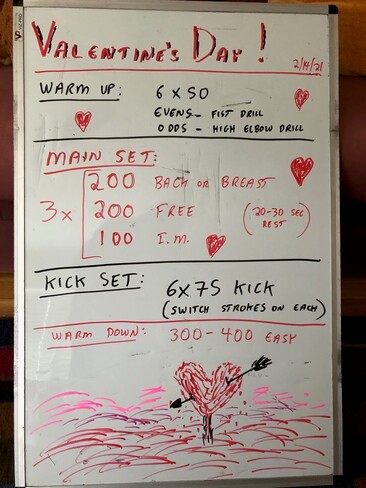 VALENTINE'S DAY!
2/14/21
WARM UP: 6 x 50
EVENS - FIST DRILL
ODDS - HIGH ELBOW DRILL
MAIN SET:
3x
200 BACK OR BREAST
200 FREE (20-30 SEC REST)
100 I.M.
KICK SET: 6x75 KICK
(SWITCH STROKES ON EACH)
WARM DOWN: 300-400 EASY